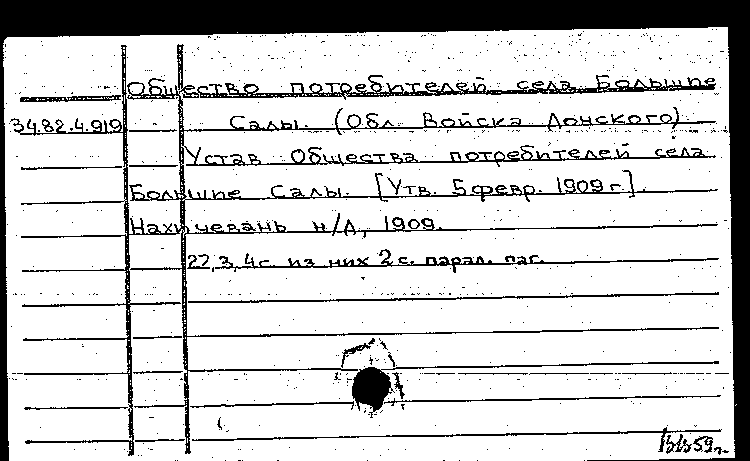 Общество потребителей села Большие
34.82.4.919 Салы. (Обл. Войска Донского)
Устав Общества потребителей села
Большие Салы. [Утв. 5 февр. 1909 г.].
Нахичевань н/Д, 1909.
22, 3, 4 с. из них 2 с. парал. паг.